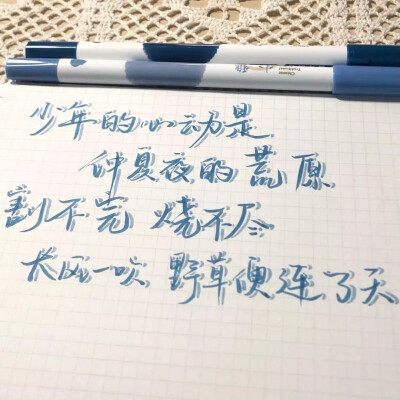 少年的心动是
仲夏夜的荒原
割不完 烧不尽
长风一吹 野草便连了天